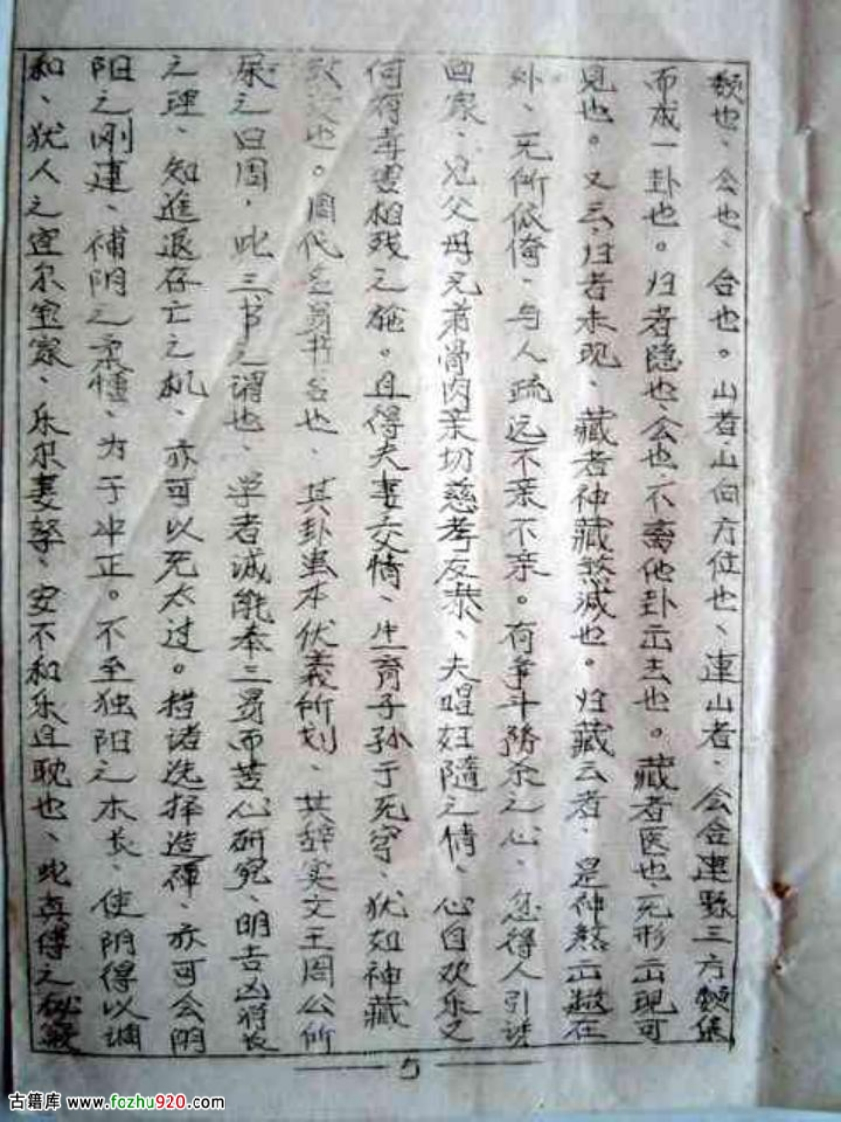 类也、公也、合也。山者山向方位也、连山者、公合连縣三方类集
而成一卦也。归者隐也、公也、不离他卦出去也。藏者医也、无形出现可
見也。又云、归者未现、藏者神藏煞減也。归藏云者、是神煞出游在
外、无所依倚、与人疏远不亲不亲。有争斗勝杀之心、忽得人引
回家、见父母兄弟骨肉亲切慈孝友恭、夫唱妇随之情、心自欢乐又
何有相残之施。且得夫妻交情、生育子孙于无穷、犹如神藏
也。周代之易书名也、其卦虽本伏義所划、其辞实文王周公所
之曰周，此三书之谓也、学者诚能奉三易而苦心研究、明吉凶消长
之理、知進退存亡之机、亦可以无太过。措诸选择造、亦可会阴
阳之刚建、補阴之柔懦、为于冲正。不至独阳之木长、使阴得以调
和、犹人之宜尔室家、乐尔妻孥、安不和乐且耽也、此真傳之秘
5
古籍库 www.fozhu920.com